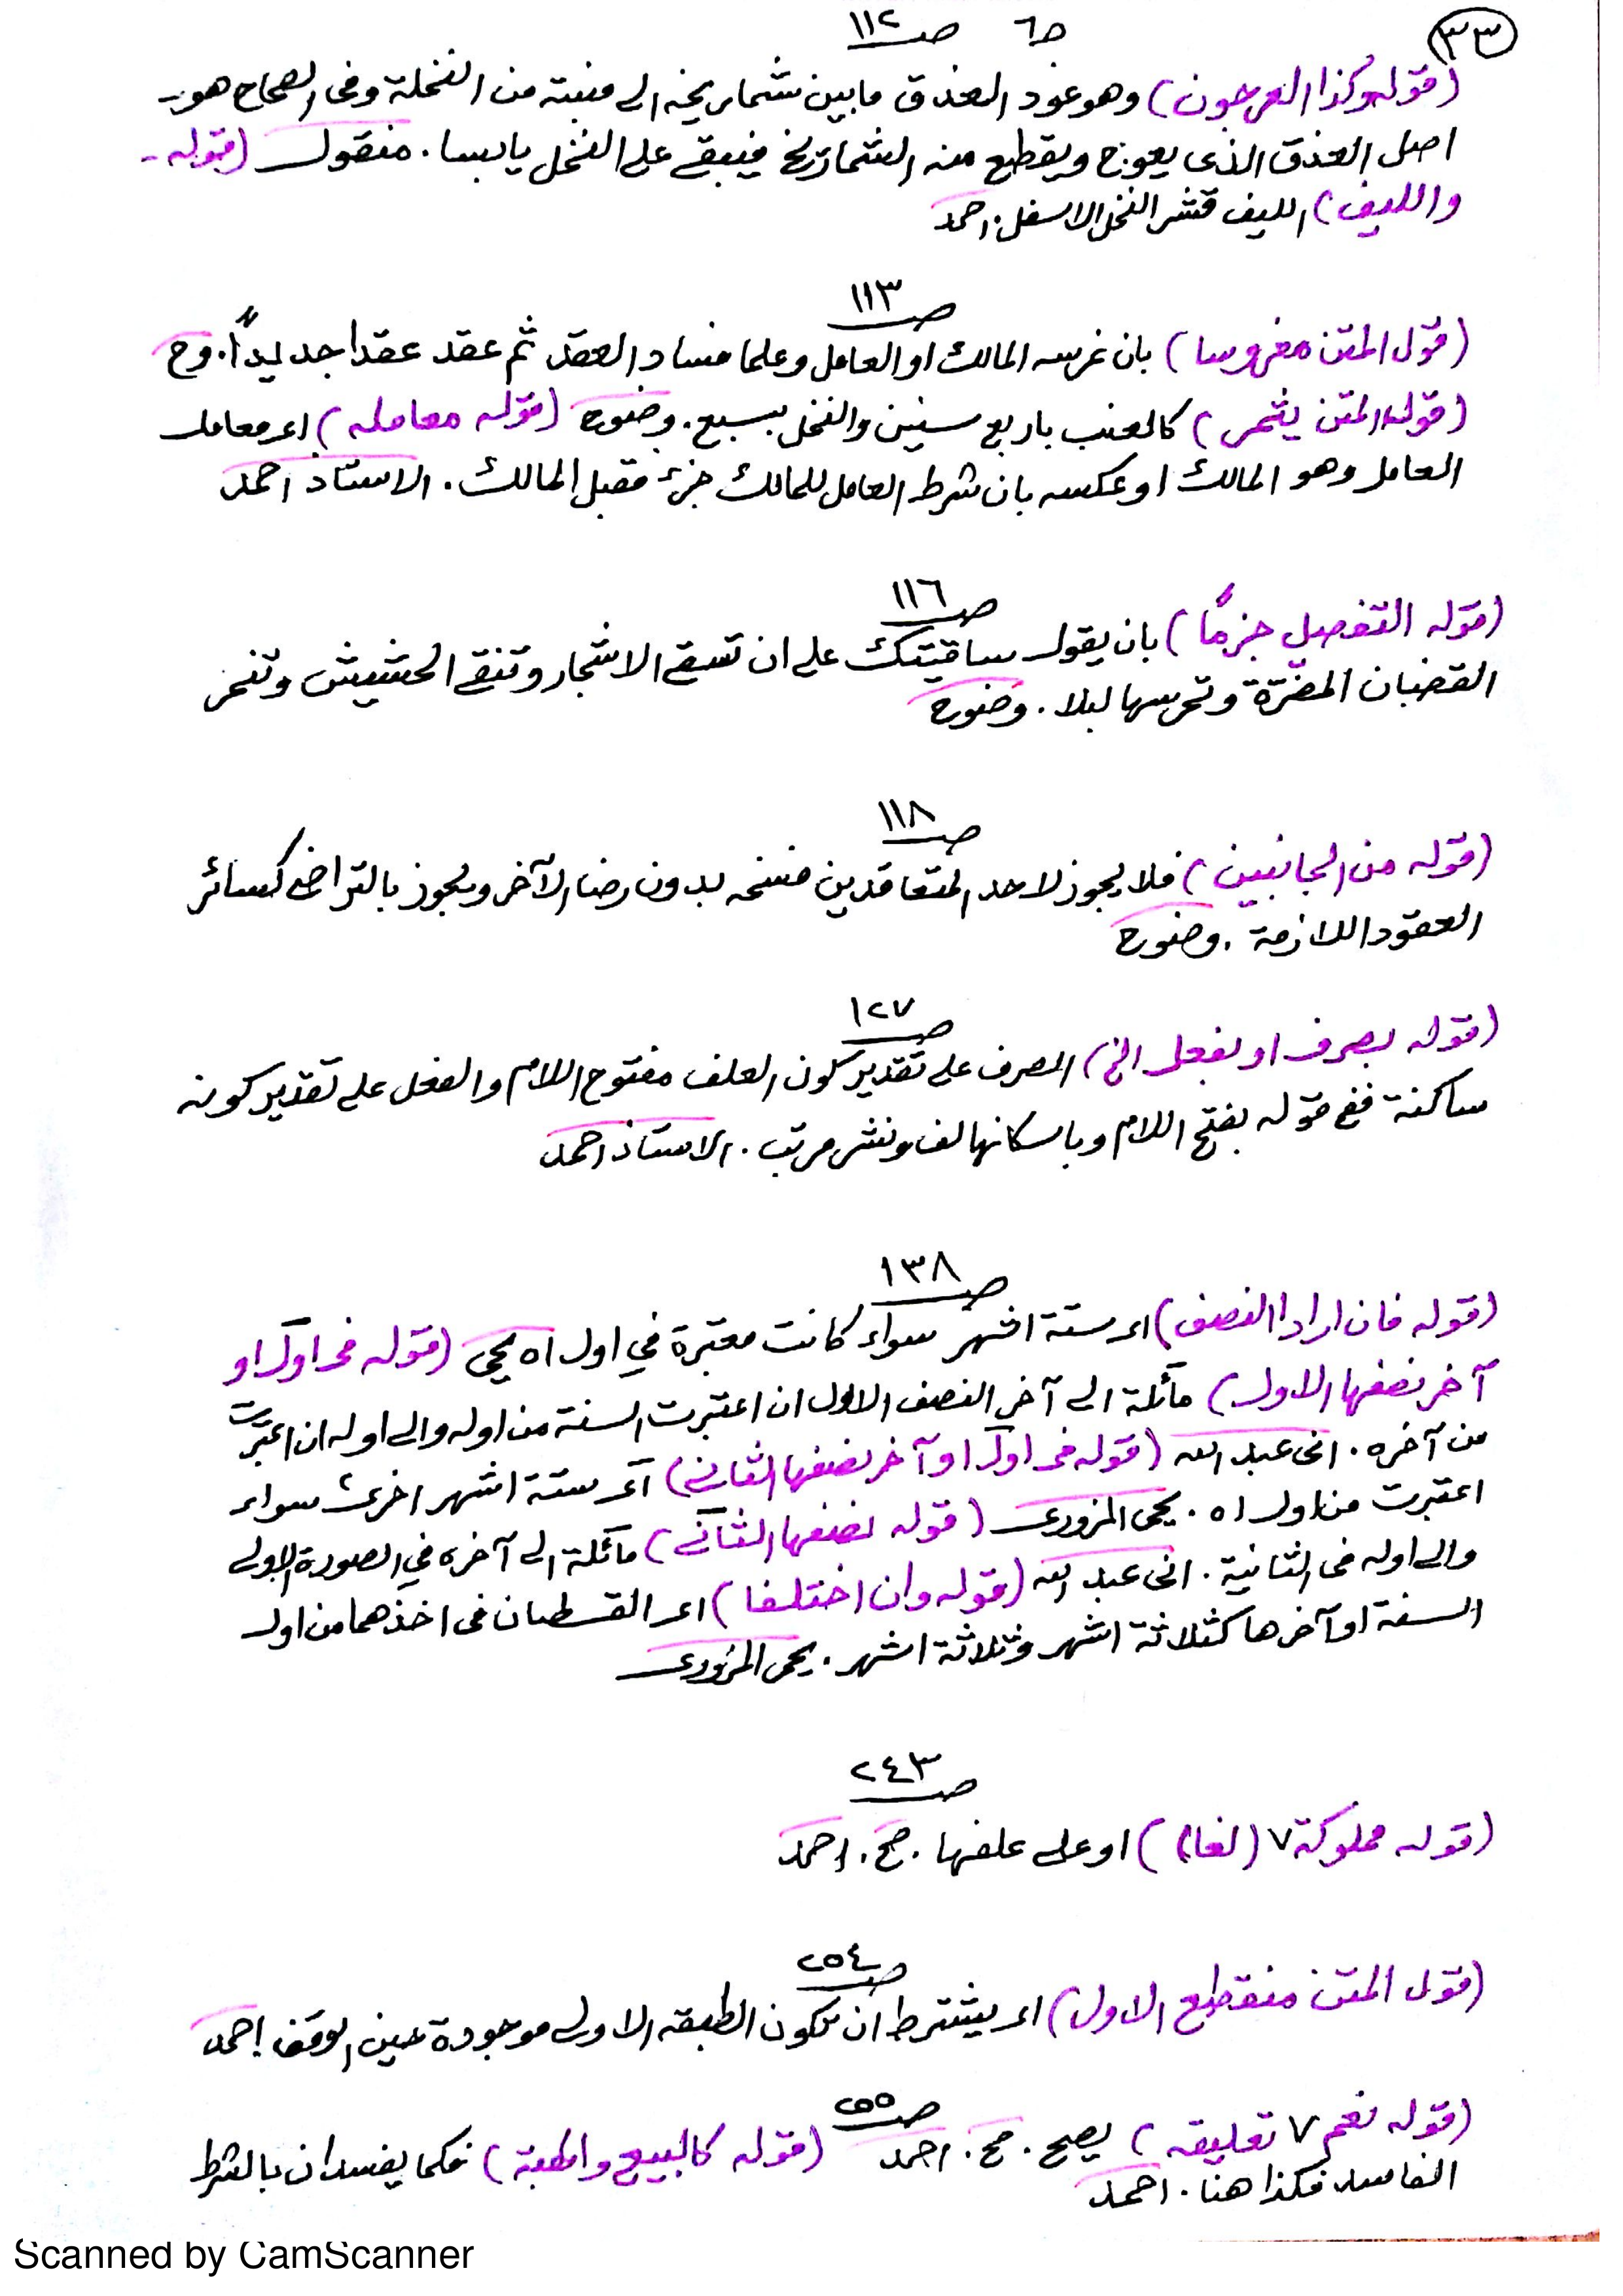 ٣٣
ج٦ صـ ١١٢
(قوله وكذا العرجون) وهو عود العذق ما بين شماريخه الى منبته من النخلة وفى الصحاح هو
اصل العذق الذى يعوج ويقطع منه الشماريخ فيبقى على النخل يابسا. منقول (قوله
والليف) الليف قشر النخل الاسفل. احمد
صـ ١١٣
(قول المتن مغروسا) بان غرسه المالك او العامل وعلما فساد العقد ثم عقد عقدا جديداً. وح
(قوله المتن يثمر) كالعنب باربع سنين والنخل بسبع. وضوح (قوله معامله) اى معامل
العامل وهو المالك او عكسه بان شرط العامل للمالك جزء فقبل المالك. الاستاذ احمد
صـ ١١٦
(قوله التفصيل جزمًا) بان يقول ساقيتك على ان تسقى الاشجار وتنقى الحشيش وتنحى
القضبان المضرّة وتحرسها ليلا. وضوح
صـ ١١٨
(قوله من الجانبين) فلا يجوز لاحد المتعاقدين فسخه بدون رضا الآخر ويجوز بالتراضى كسائر
العقود اللازمة. وضوح
صـ ١٢٧
(قوله بصرف او بفعل الخ) الصرف على تقدير كون العلف مفتوح اللام والفعل على تقدير كونه
ساكنة ففى قوله بفتح اللام وباسكانها لف ونشر مرتب. الاستاذ احمد
صـ ١٣٨
(قوله فان ارادا النصف) اى ستة اشهر سواء كانت معتبرة في اول اه يحيى (قوله فى اول او
آخر نصفها الاول) مآئلة الى آخر النصف الاول ان اعتبرت السنة من اوله والى اوله ان اعتبرت
من آخره. انى عبد الله (قوله فى اول او آخر نصفها الثانى) آى ستة اشهر اخرى سواء
اعتبرت من اول اه. يحيى المزورى (قوله نصفها الثانى) مآئلة الى آخره في الصورة الاولى
والى اوله فى الثانية. انى عبد الله (قوله وان اختلفا) اى القسطان فى اخذهما من اول
السنة او آخرها كثلاثة اشهر وثلاثة اشهر. يحيى المزورى
صـ ٢٤٣
(قوله مملوكة ٧ (لغا)) او على علفها. صح. احمد
صـ ٢٥٤
(قول المتن منقطع الاول) اى يشترط ان تكون الطبقه الاولى موجودة حين الوقف احمد
صـ ٢٥٥
(قوله نعم ٧ تعليقه) يصح. صح. احمد (قوله كالبيع والهبة) فكما يفسدان بالشرط
الفاسد فكذا هنا. احمد
Scanned by CamScanner